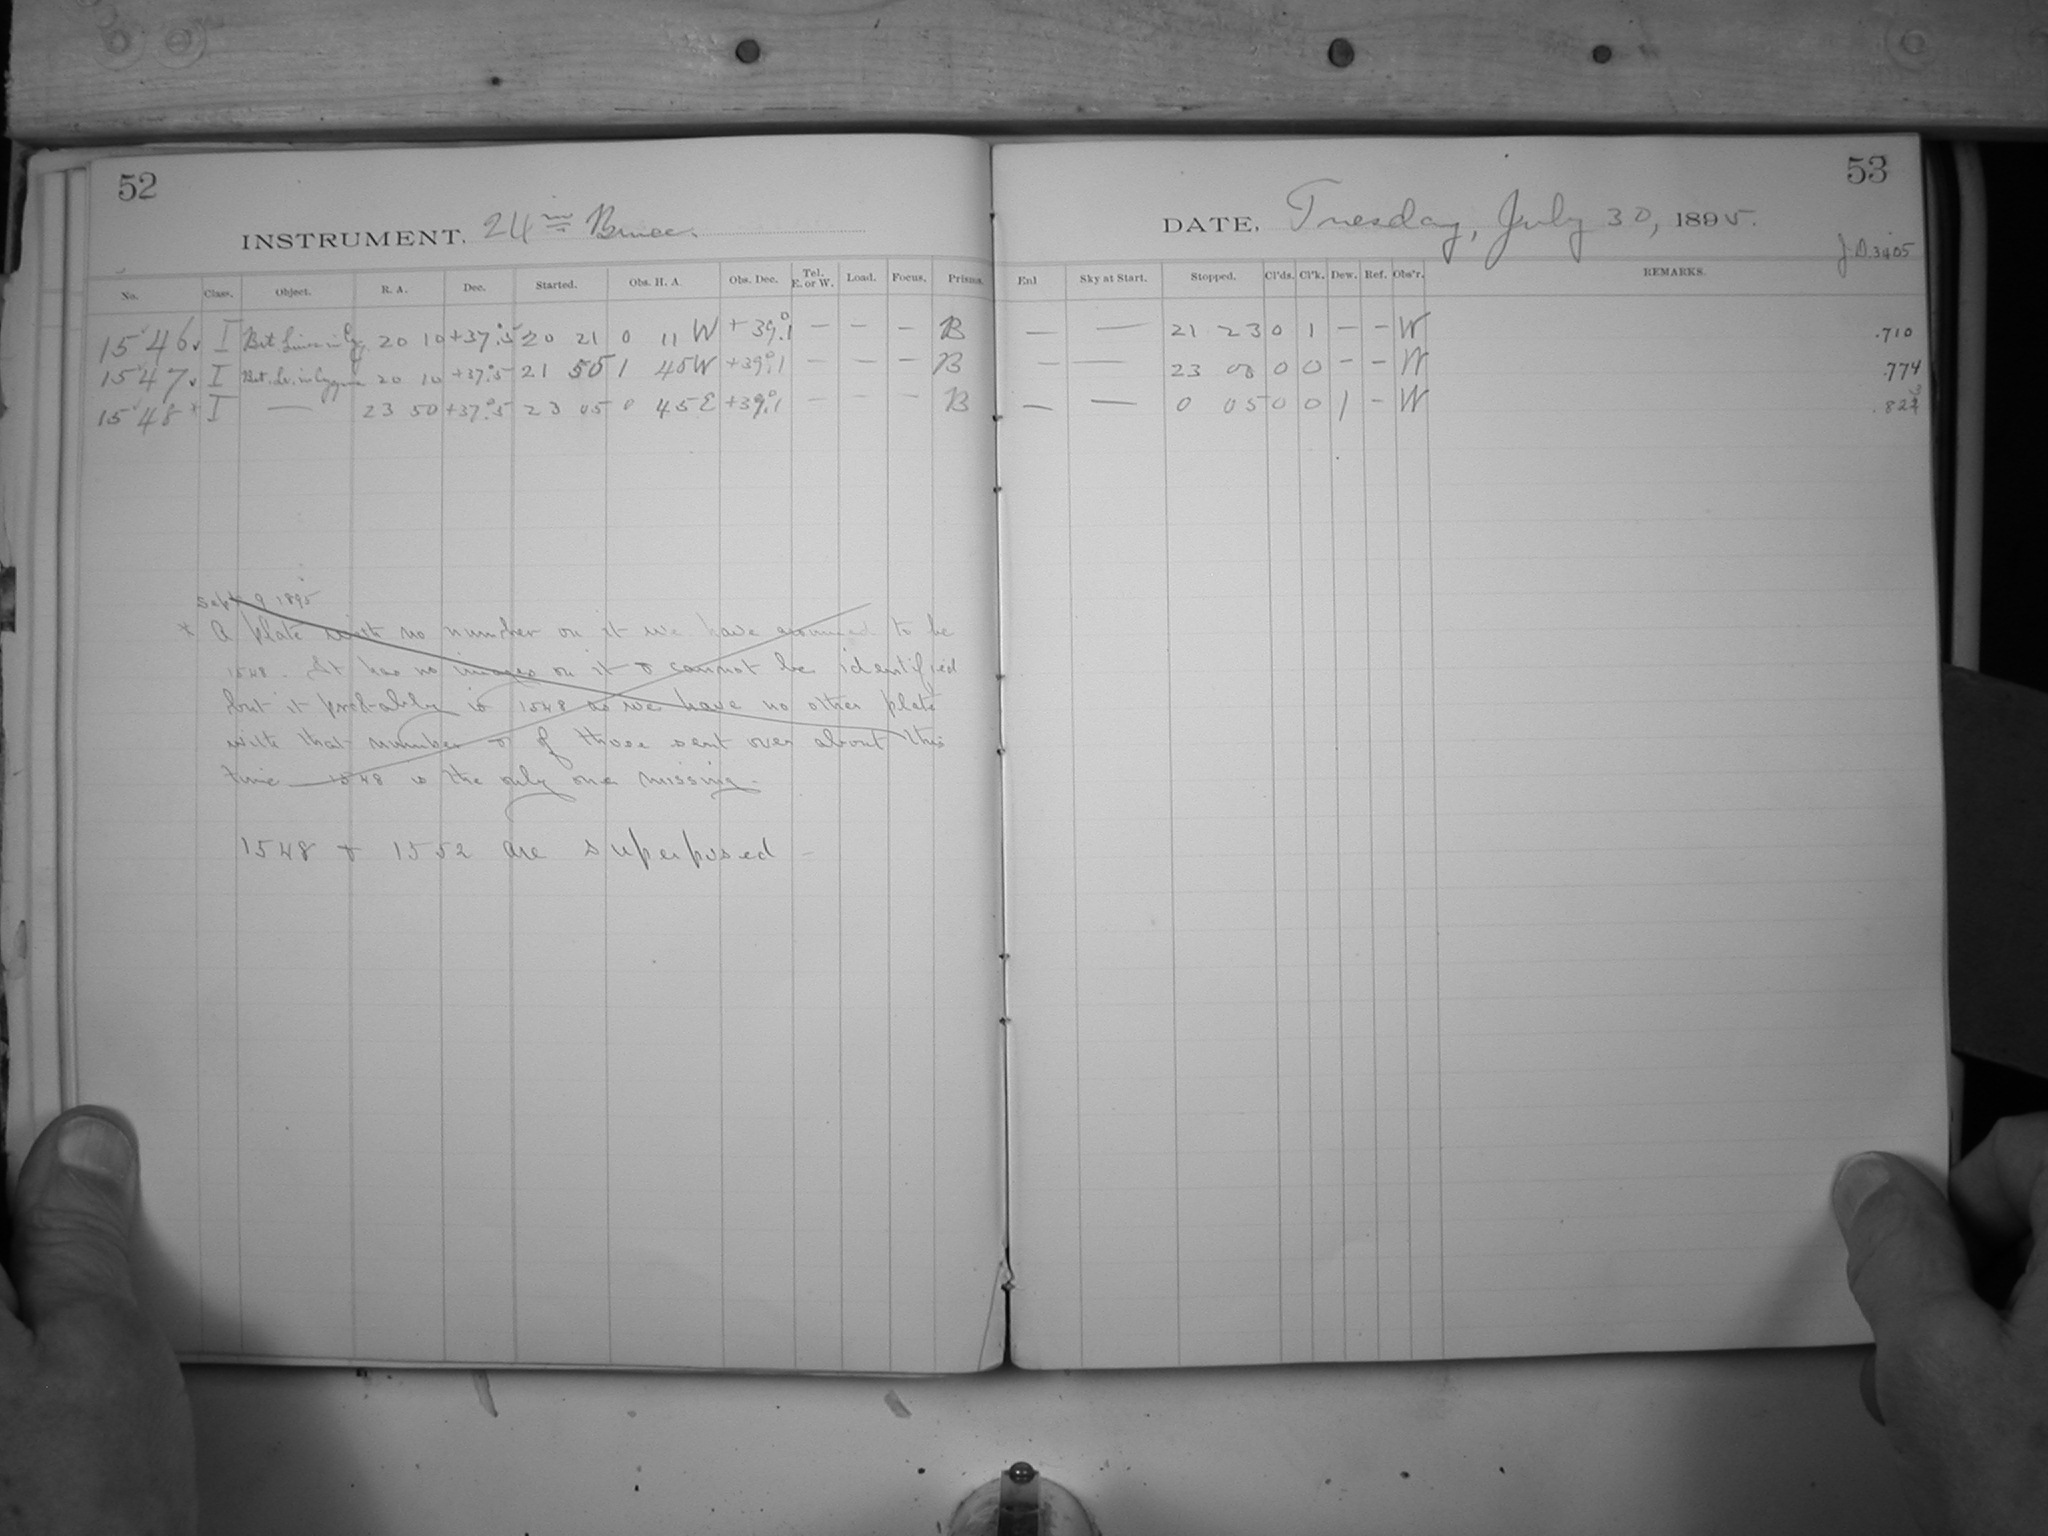 52
INSTRUMENT. 24 in Bruce.
No. Class. Object. R. A. Dec. Started. Obs. H. A. Obs. Dec. Tel. E. or W. Load. Focus. Prisms.
1546 I 20 10 +37°.5 20 21 0 11 W +39°.1 — — — B
1547 I 20 10 +37°.5 21 55 1 45 W +39°.1 — — — B
1548 * I — 23 50 +37°.5 23 05 0 45 E +39°.1 — — — B
Sept 9 1895
* A plate with no number on it we have assumed to be
1548. It has no images on it & cannot be identified
but it probably is 1548 as we have no other plate
with that number & of those sent over about this
time — 1548 is the only one missing —
1548 & 1552 are superposed —
53
DATE. Tuesday, July 30, 1895.
J.D. 3405
Enl Sky at Start. Stopped. Cl'ds. Cl'k. Dew. Ref. Obs'r. REMARKS.
— — 21 23 0 1 — — W .710
— — 23 00 0 0 — — W .774
— — 0 05 0 0 1 — W